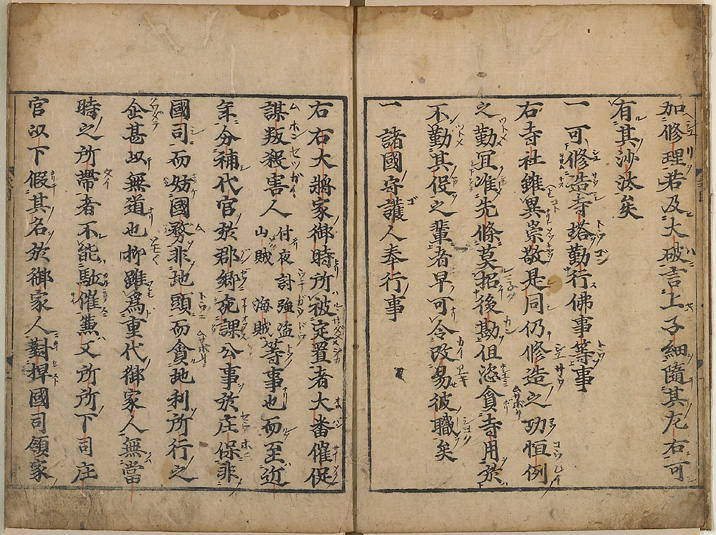 加修理若及大破言上子細隨其左右可
有其沙汰矣
一 可修造寺塔勤行佛事等事
右寺社雖異崇敬是同仍修造之功恒例
之勤宜准先條莫招後勘但恣貪寺用於
不勤其役之輩者早可令改易彼職矣
一 諸國守護人奉行事
右右大將家御時所被定置者大番催促
謀叛殺害人 付夜討強盗山賊海賊 等事也而至近
年分補代官於郡郷宛課公事於庄保非
國司而妨國務非地頭而貪地利所行之
企甚以無道也抑雖爲重代御家人無當
時之所帶者不能駈催兼又所所下司庄
官以下假其名於御家人對捍國司領家